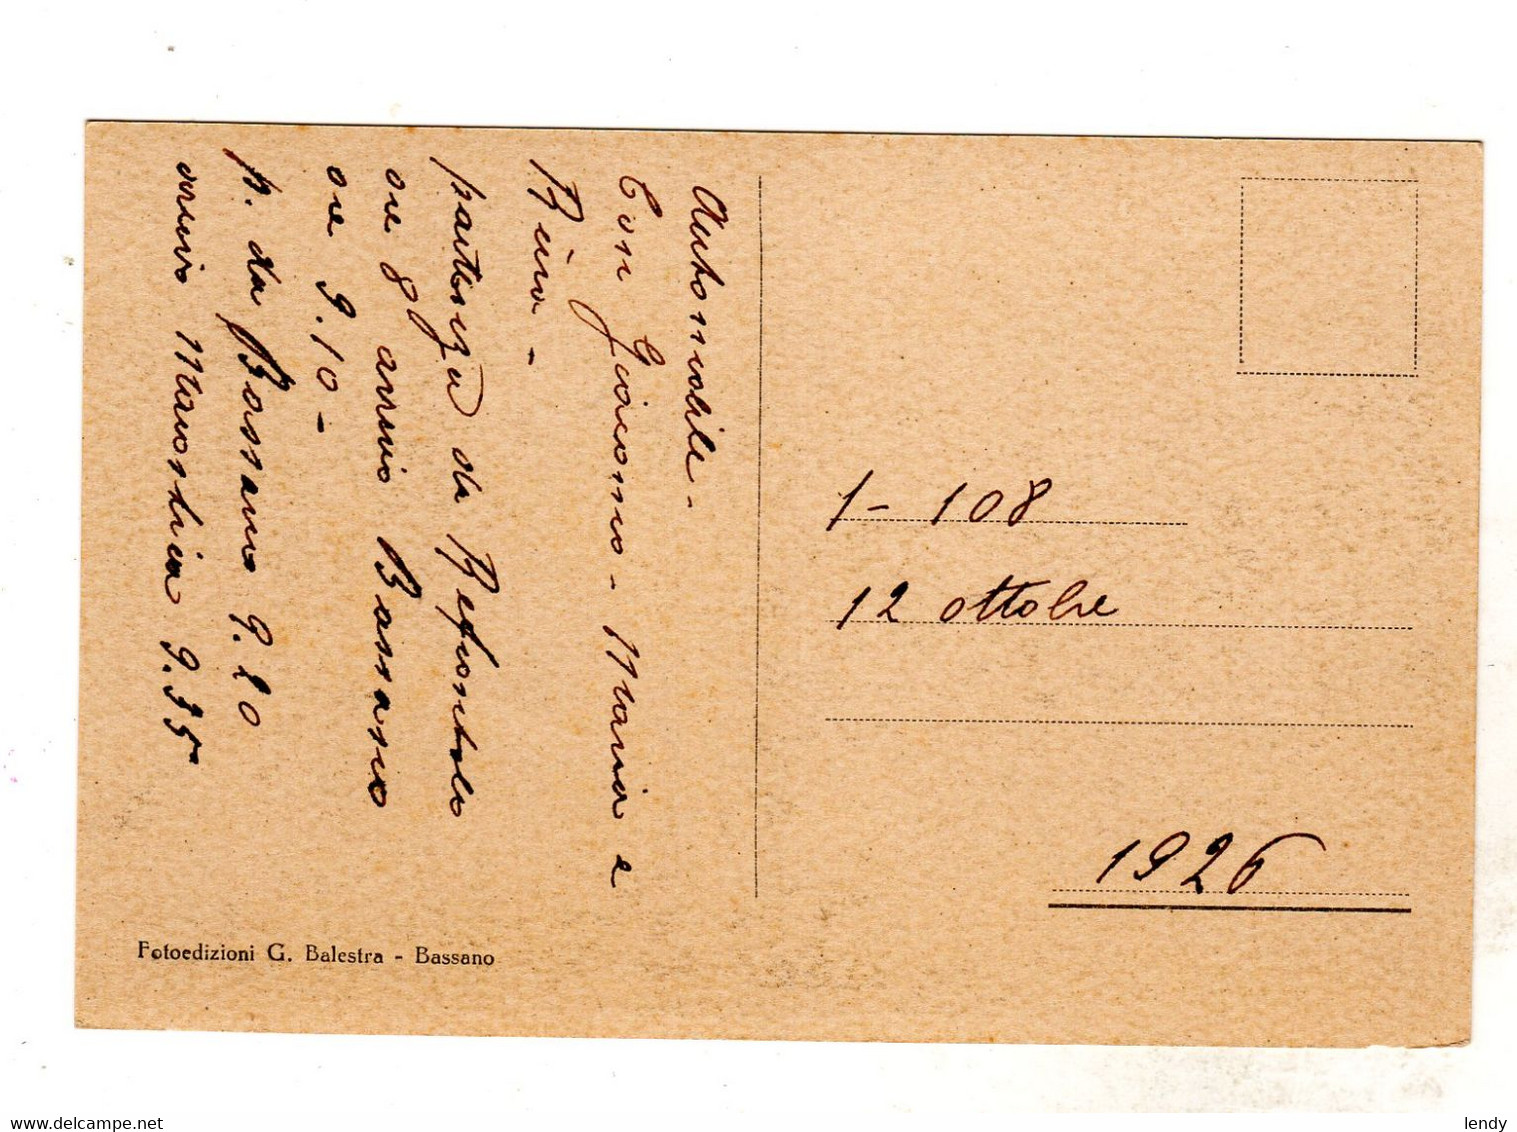 Automobile -
Con Giacomo - Maria e
Rina -
partenza da Refrontolo
ore 8 arrivo Bassano
ore 9.10 -
p. da Bassano 9.20
arrivo Marostica 9.35
1 - 108
12 ottobre
1926
Fotoedizioni G. Balestra - Bassano
lendy